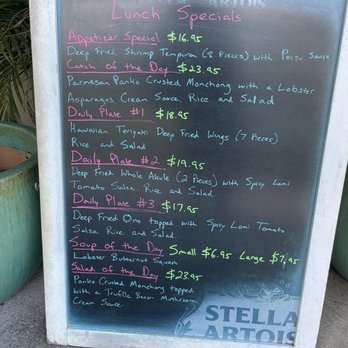 ARTOIS
Lunch Specials
Appetizer Special $16.95
Deep Fried Shrimp Tempura (3 Pieces) with Ponzu Sauce
Catch of the Day $23.95
Parmesan Panko Crusted Monchong with a Lobster
Asparagus Cream Sauce. Rice and Salad
Daily Plate #1 $18.95
Hawaiian Teriyaki Deep Fried Wings (7 Pieces)
Rice and Salad
Daily Plate #2 $19.95
Deep Fried Whole Akule (2 Pieces) with Spicy Lomi
Tomato Salsa. Rice and Salad
Daily Plate #3 $17.95
Deep Fried Ono topped with Spicy Lomi Tomato
Salsa. Rice and Salad.
Soup of the Day Small $6.95 Large $7.95
Lobster Butternut Squash
Salad of the Day $23.95
Panko Crusted Monchong topped
with a Truffle Bacon Mushroom
Cream Sauce.
STELLA
ARTOIS